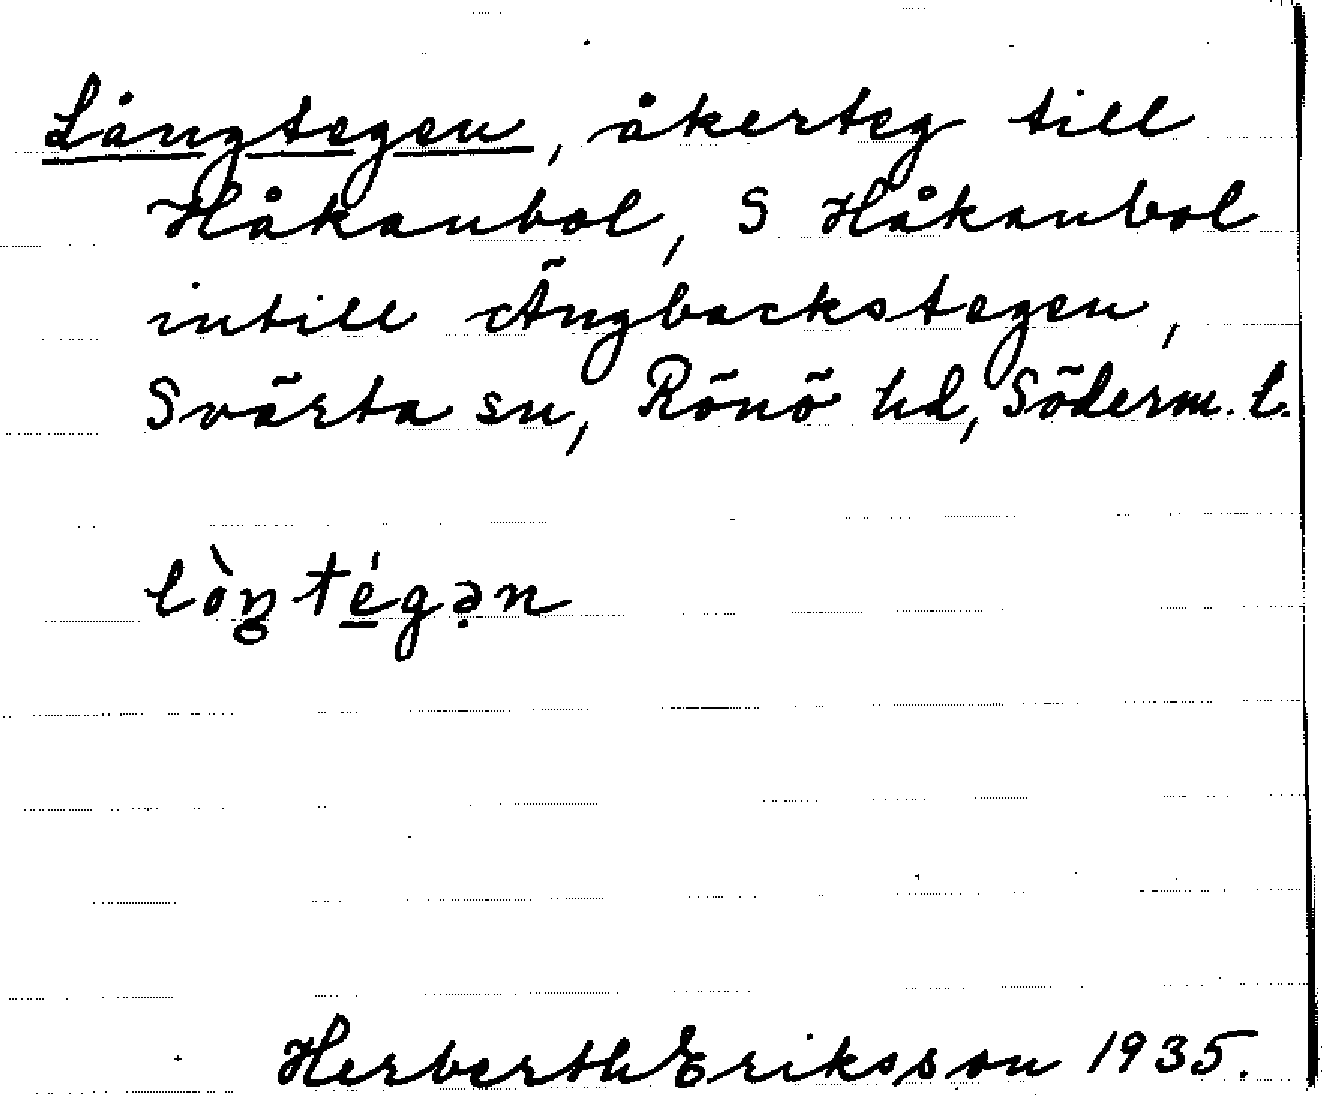 Långtegen, åkerteg till
Håkanbol, S Håkanbol
intill Ängbackstegen,
Svärta sn, Rönö hd, Söderm. l.
lòŋtégən
Herberth Eriksson 1935.